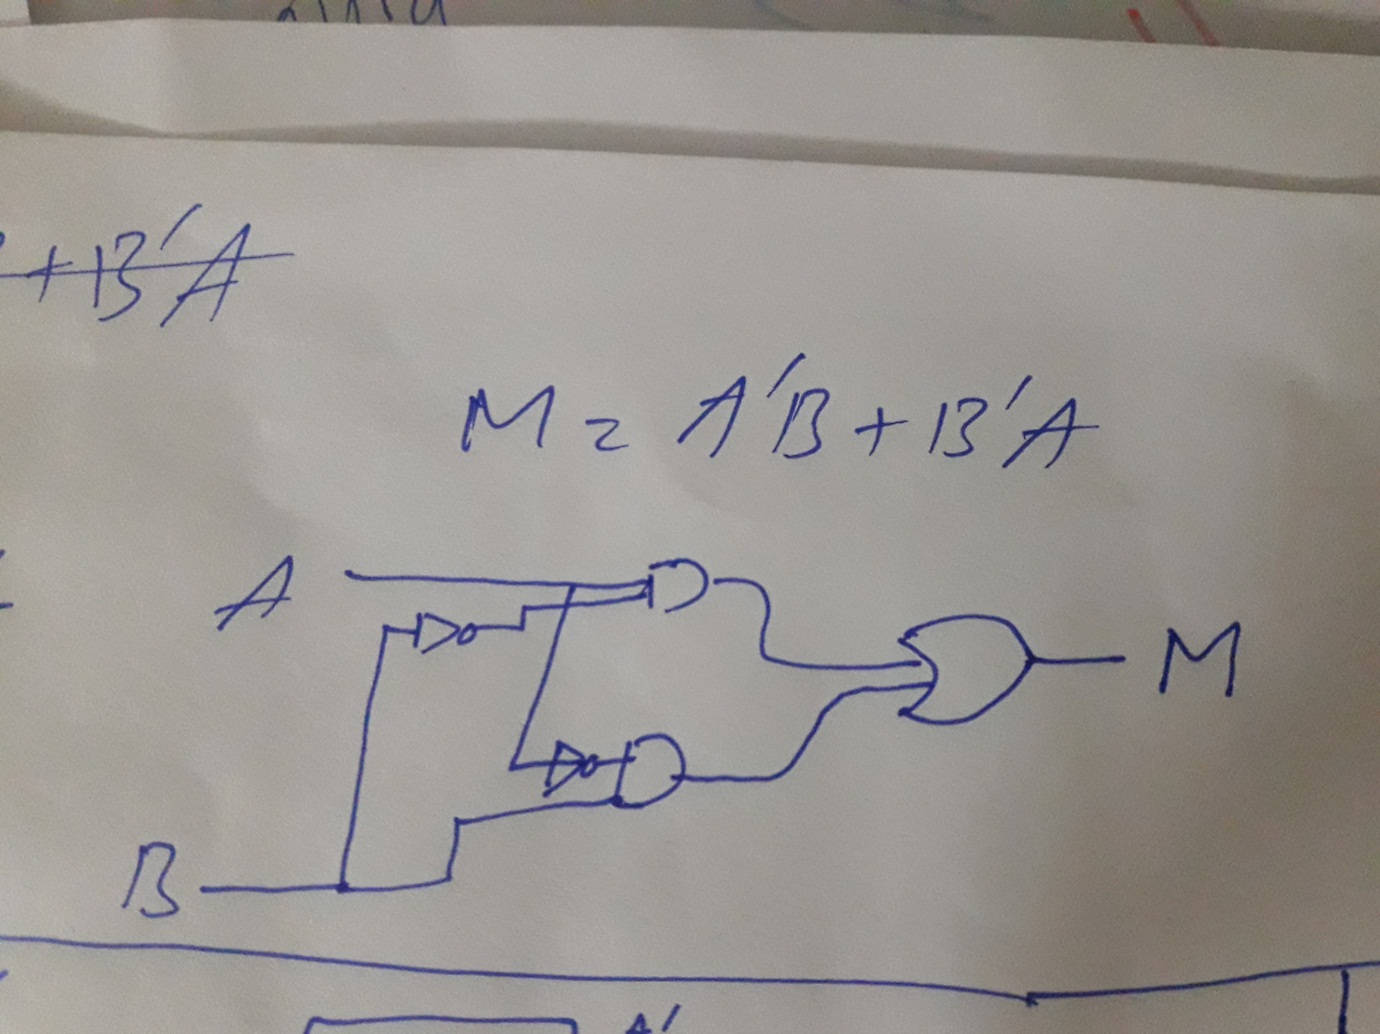 +B'A
M = A'B + B'A
A
M
B
A'